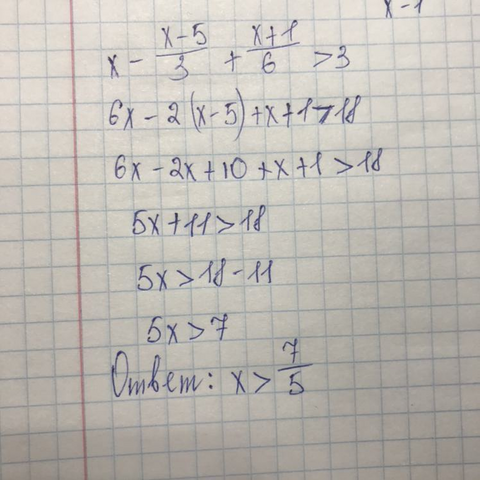 x-1
x - \frac{x-5}{3} + \frac{x+1}{6} > 3
6x - 2(x-5) + x + 1 > 18
6x - 2x + 10 + x + 1 > 18
5x + 11 > 18
5x > 18 - 11
5x > 7
Ответ: x > \frac{7}{5}